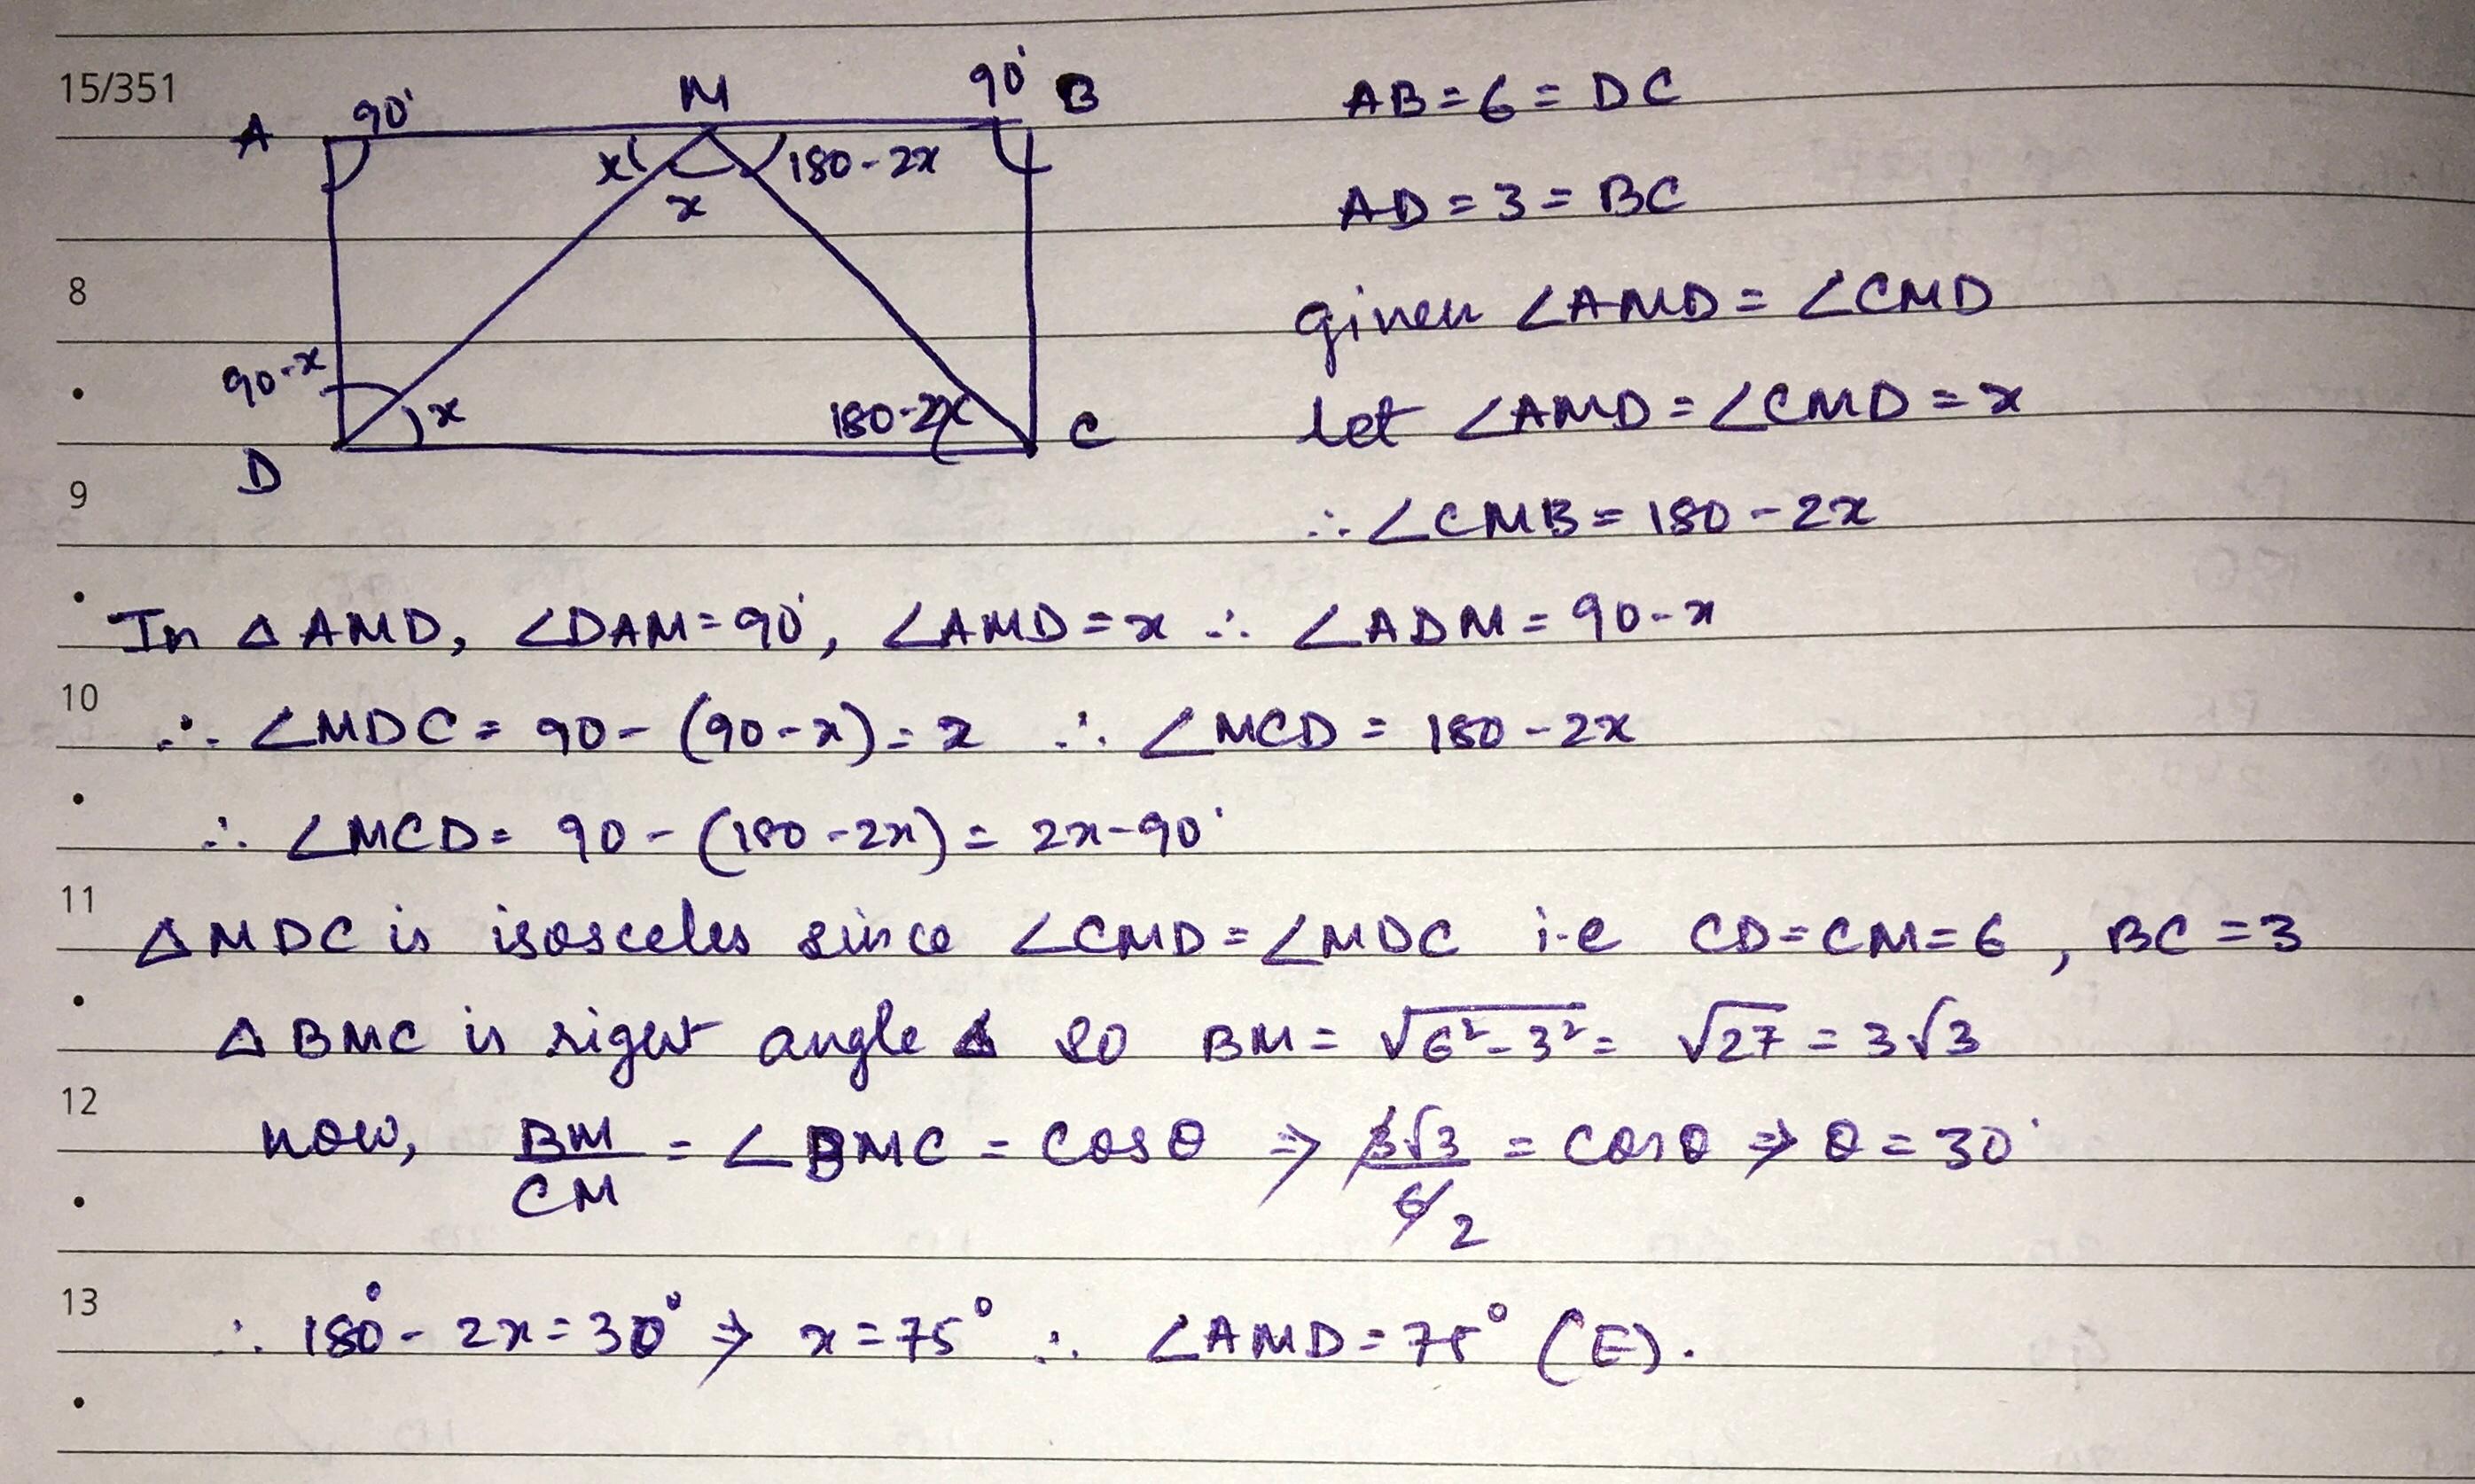 15/351
A 90° M 90° B
x 180-2x
x
90-x x 180-2x
D C
AB = 6 = DC
AD = 3 = BC
8
given ∠AMD = ∠CMD
let ∠AMD = ∠CMD = x
9
∴ ∠CMB = 180 - 2x
In △ AMD, ∠DAM = 90°, ∠AMD = x ∴ ∠ADM = 90-x
10
∴ ∠MDC = 90 - (90-x) = x ∴ ∠MCD = 180 - 2x
∴ ∠MCD = 90 - (180 - 2x) = 2x - 90°
11
△ MDC is isosceles since ∠CMD = ∠MDC i.e CD = CM = 6, BC = 3
△ BMC is right angle △ so BM = √6²-3² = √27 = 3√3
12
now, BM/CM = ∠BMC = cos θ ⇒ 3√3/6 2 = cos θ ⇒ θ = 30°
13
∴ 180° - 2x = 30° ⇒ x = 75° ∴ ∠AMD = 75° (E).